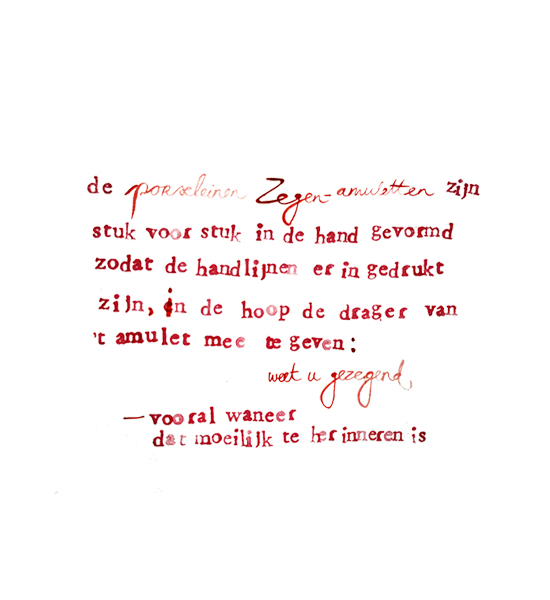 de porseleinen Zegen-amuletten zijn
stuk voor stuk in de hand gevormd
zodat de handlijnen er in gedrukt
zijn, in de hoop de drager van
't amulet mee te geven:
weet u gezegend,
— vooral waneer
dat moeilijk te herinneren is